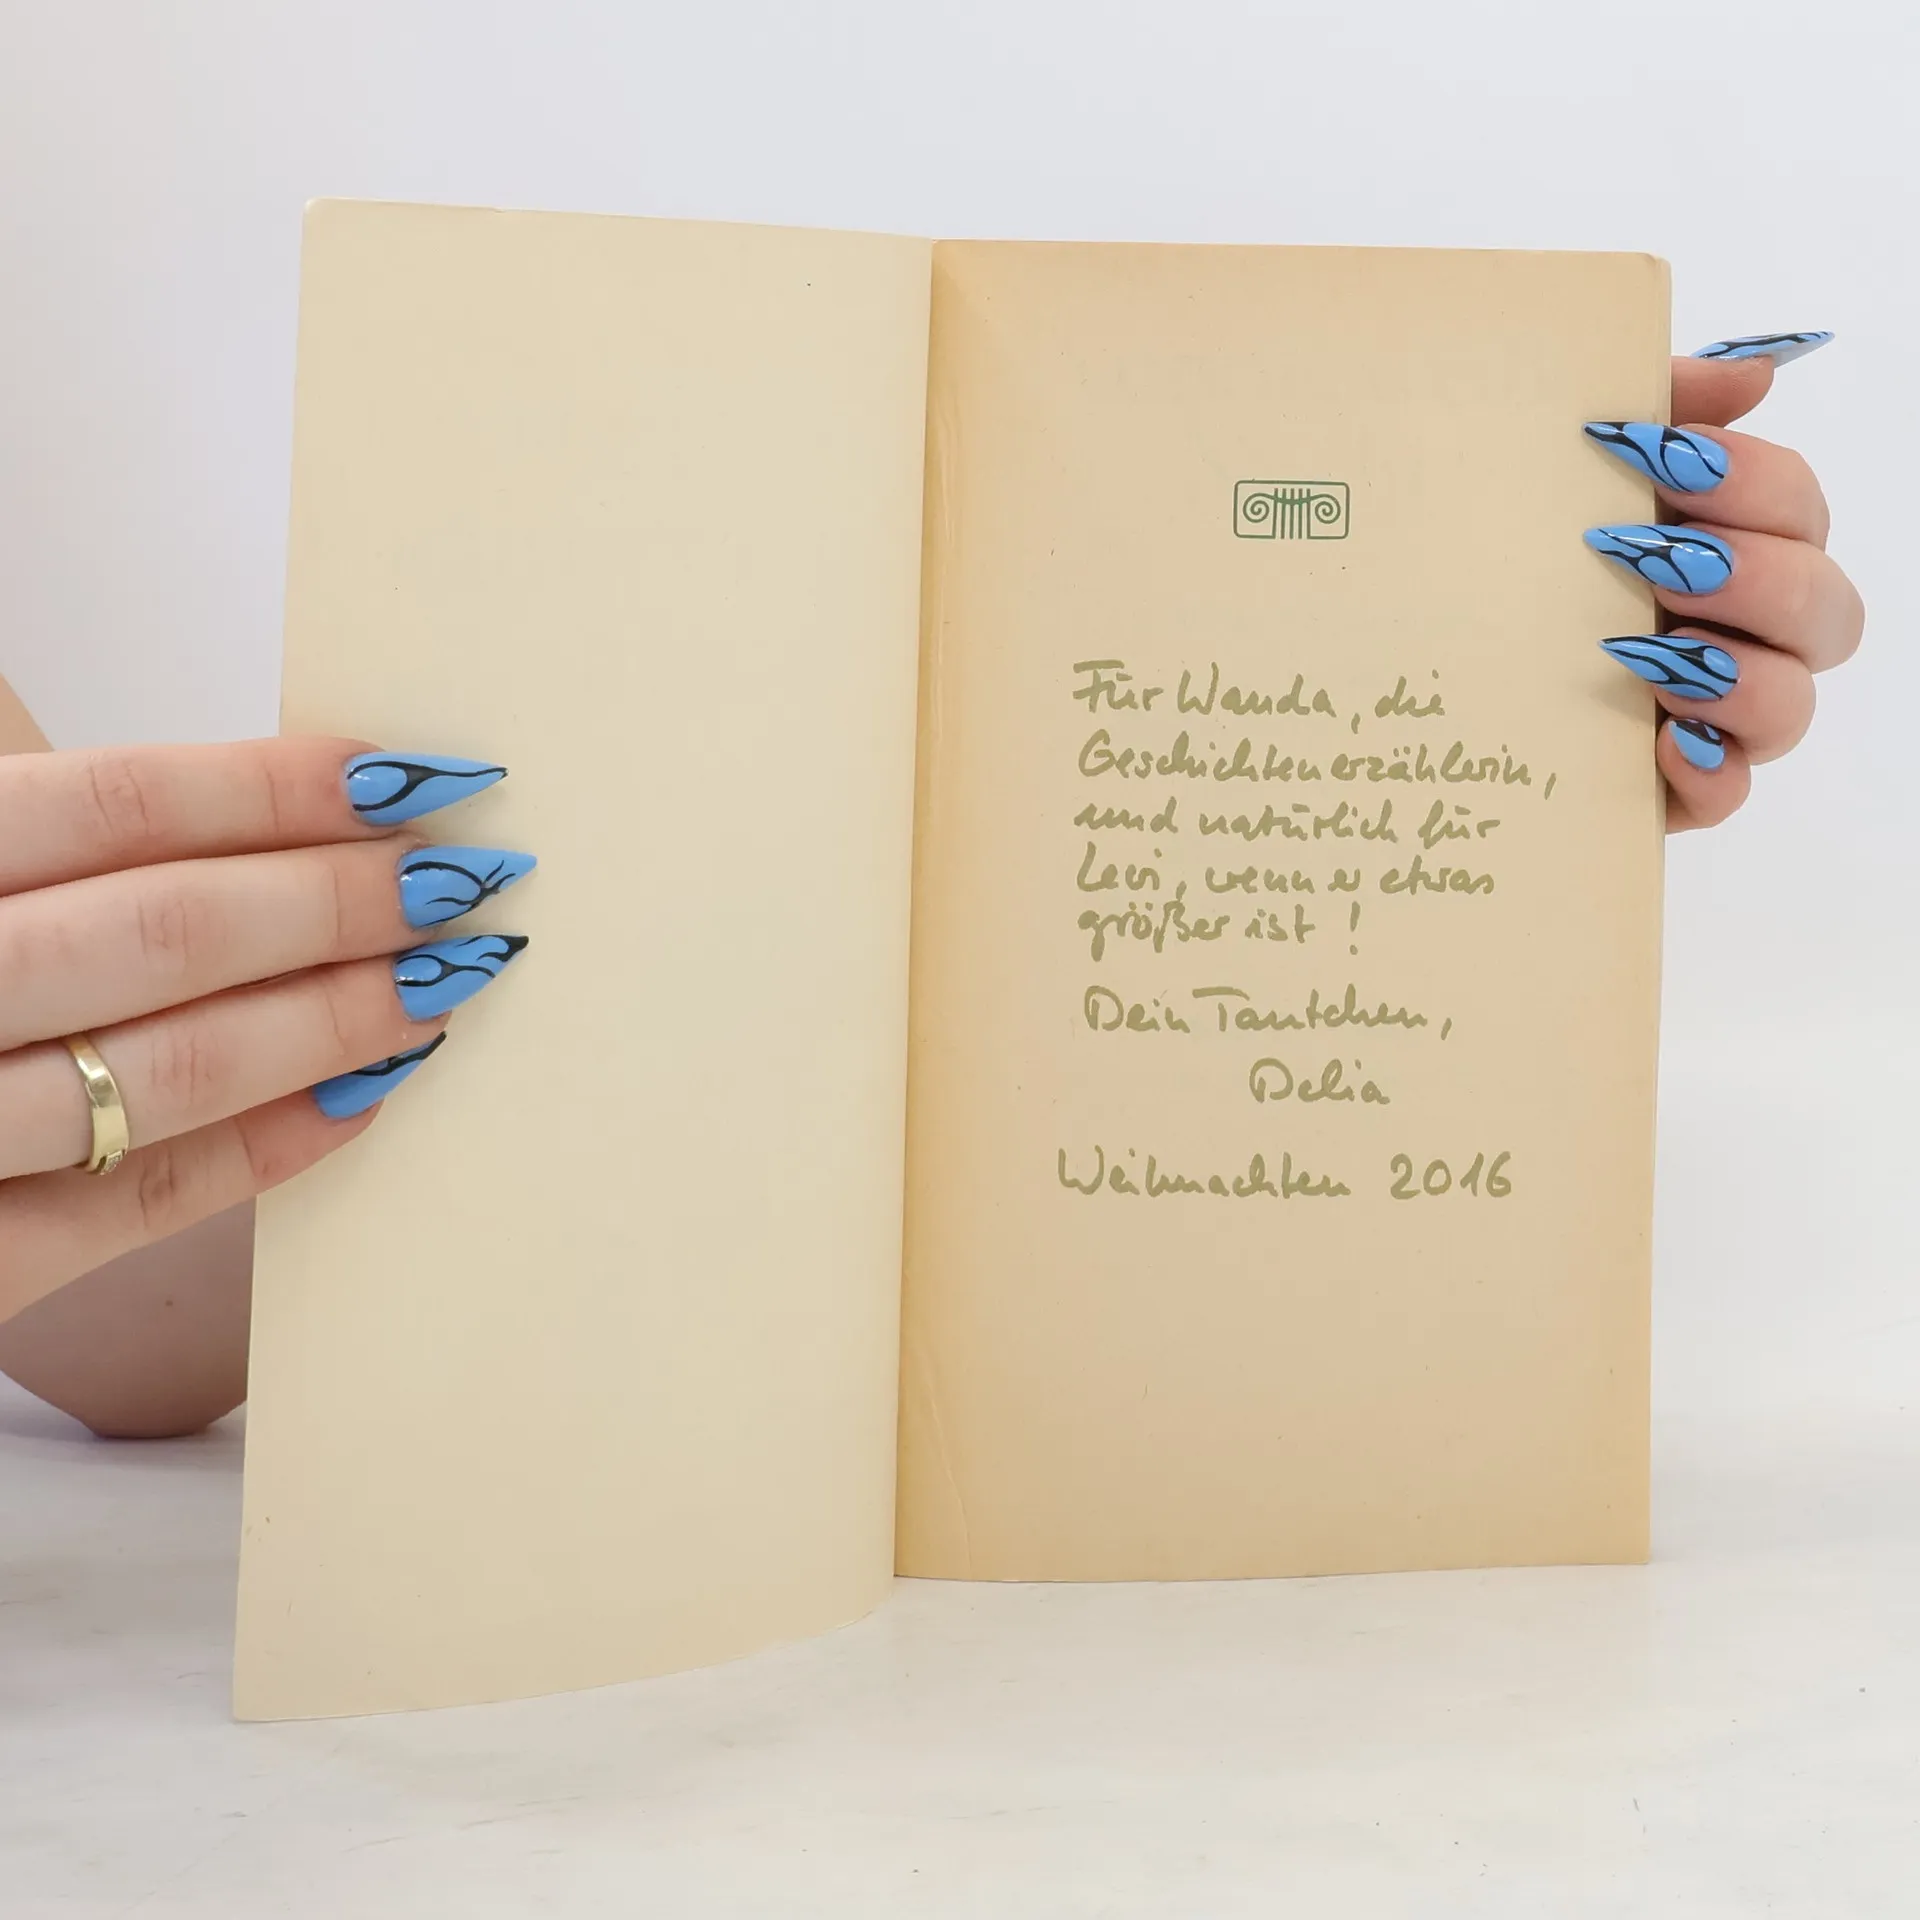 Für Wanda, die
Geschichtenerzählerin,
und natürlich für
Levi, wenn er etwas
größer ist!
Dein Tantchen,
Delia
Weihnachten 2016